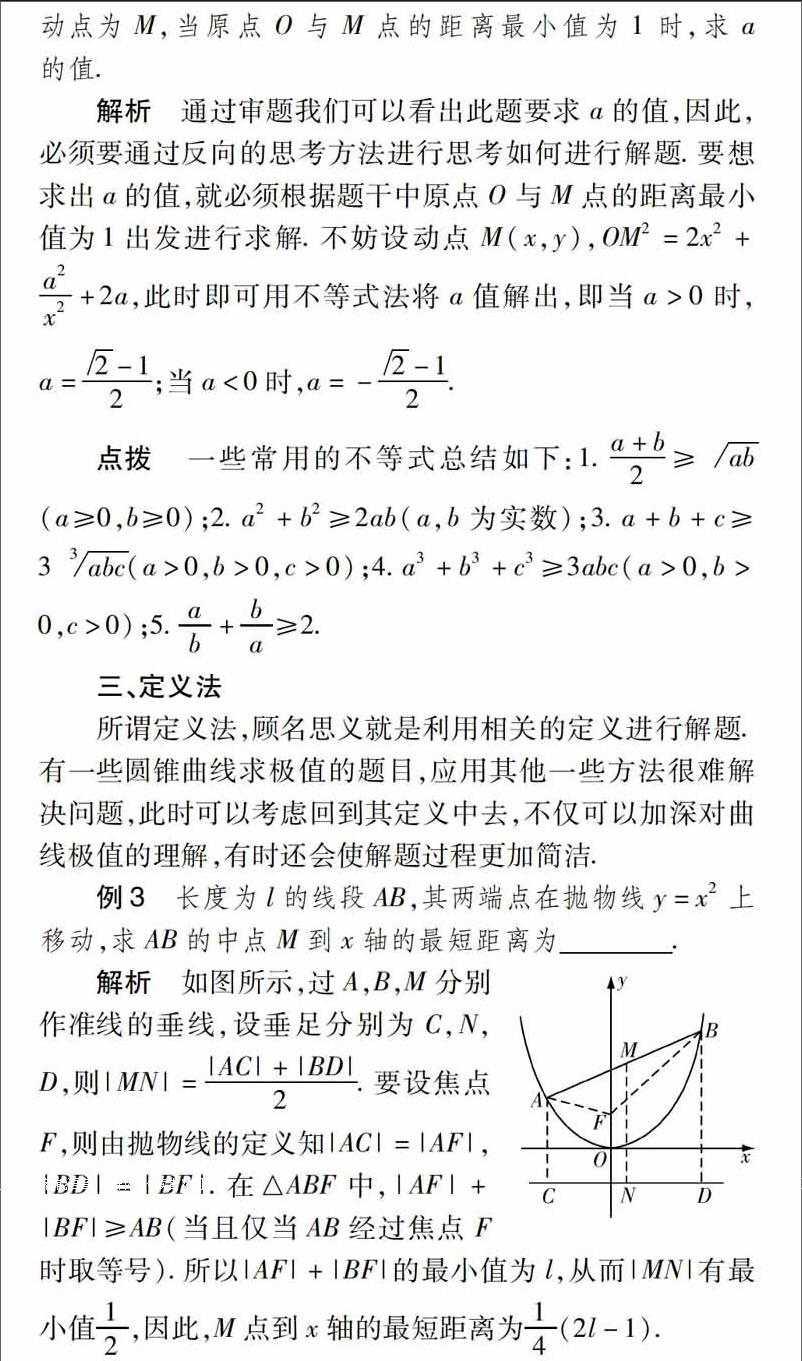 动点为 M,当原点 O 与 M 点的距离最小值为 1 时,求 a
的值.
解析 通过审题我们可以看出此题要求 a 的值,因此,
必须要通过反向的思考方法进行思考如何进行解题. 要想
求出 a 的值,就必须根据题干中原点 O 与 M 点的距离最小
值为 1 出发进行求解. 不妨设动点 M(x,y),OM² = 2x² +
a²/x² + 2a,此时即可用不等式法将 a 值解出,即当 a > 0 时,
a = (√2 - 1)/2;当 a < 0 时,a = -(√2 - 1)/2.
点拨 一些常用的不等式总结如下:1. (a + b)/2 ≥ √ab
(a≥0,b≥0);2. a² + b² ≥2ab(a,b 为实数);3. a + b + c ≥
3 ³√abc(a >0,b >0,c >0);4. a³ + b³ + c³ ≥3abc(a >0,b >
0,c >0);5. a/b + b/a ≥2.
三、定义法
所谓定义法,顾名思义就是利用相关的定义进行解题.
有一些圆锥曲线求极值的题目,应用其他一些方法很难解
决问题,此时可以考虑回到其定义中去,不仅可以加深对曲
线极值的理解,有时还会使解题过程更加简洁.
例 3 长度为 l 的线段 AB,其两端点在抛物线 y = x² 上
移动,求 AB 的中点 M 到 x 轴的最短距离为________.
解析 如图所示,过 A,B,M 分别
作准线的垂线,设垂足分别为 C,N,
D,则|MN| = (|AC| + |BD|)/2. 要设焦点
F,则由抛物线的定义知|AC| = |AF|,
|BD| = |BF|. 在 △ABF 中,|AF| +
|BF|≥AB(当且仅当 AB 经过焦点 F
时取等号). 所以|AF| + |BF|的最小值为 l,从而|MN|有最
小值1/2,因此,M 点到 x 轴的最短距离为1/4(2l - 1).
y
B
M
A
F
O
x
C
N
D